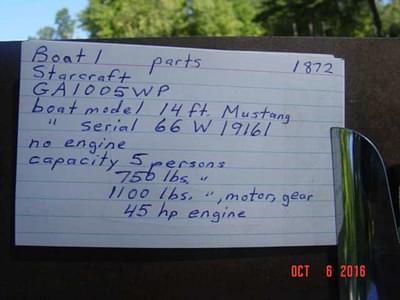 Boat 1 parts 1872
Starcraft
GA1005WP
boat model 14 ft. Mustang
" serial 66 W 19161
no engine
capacity 5 persons
750 lbs. "
1100 lbs. ", motor, gear
45 hp engine
OCT 6 2016